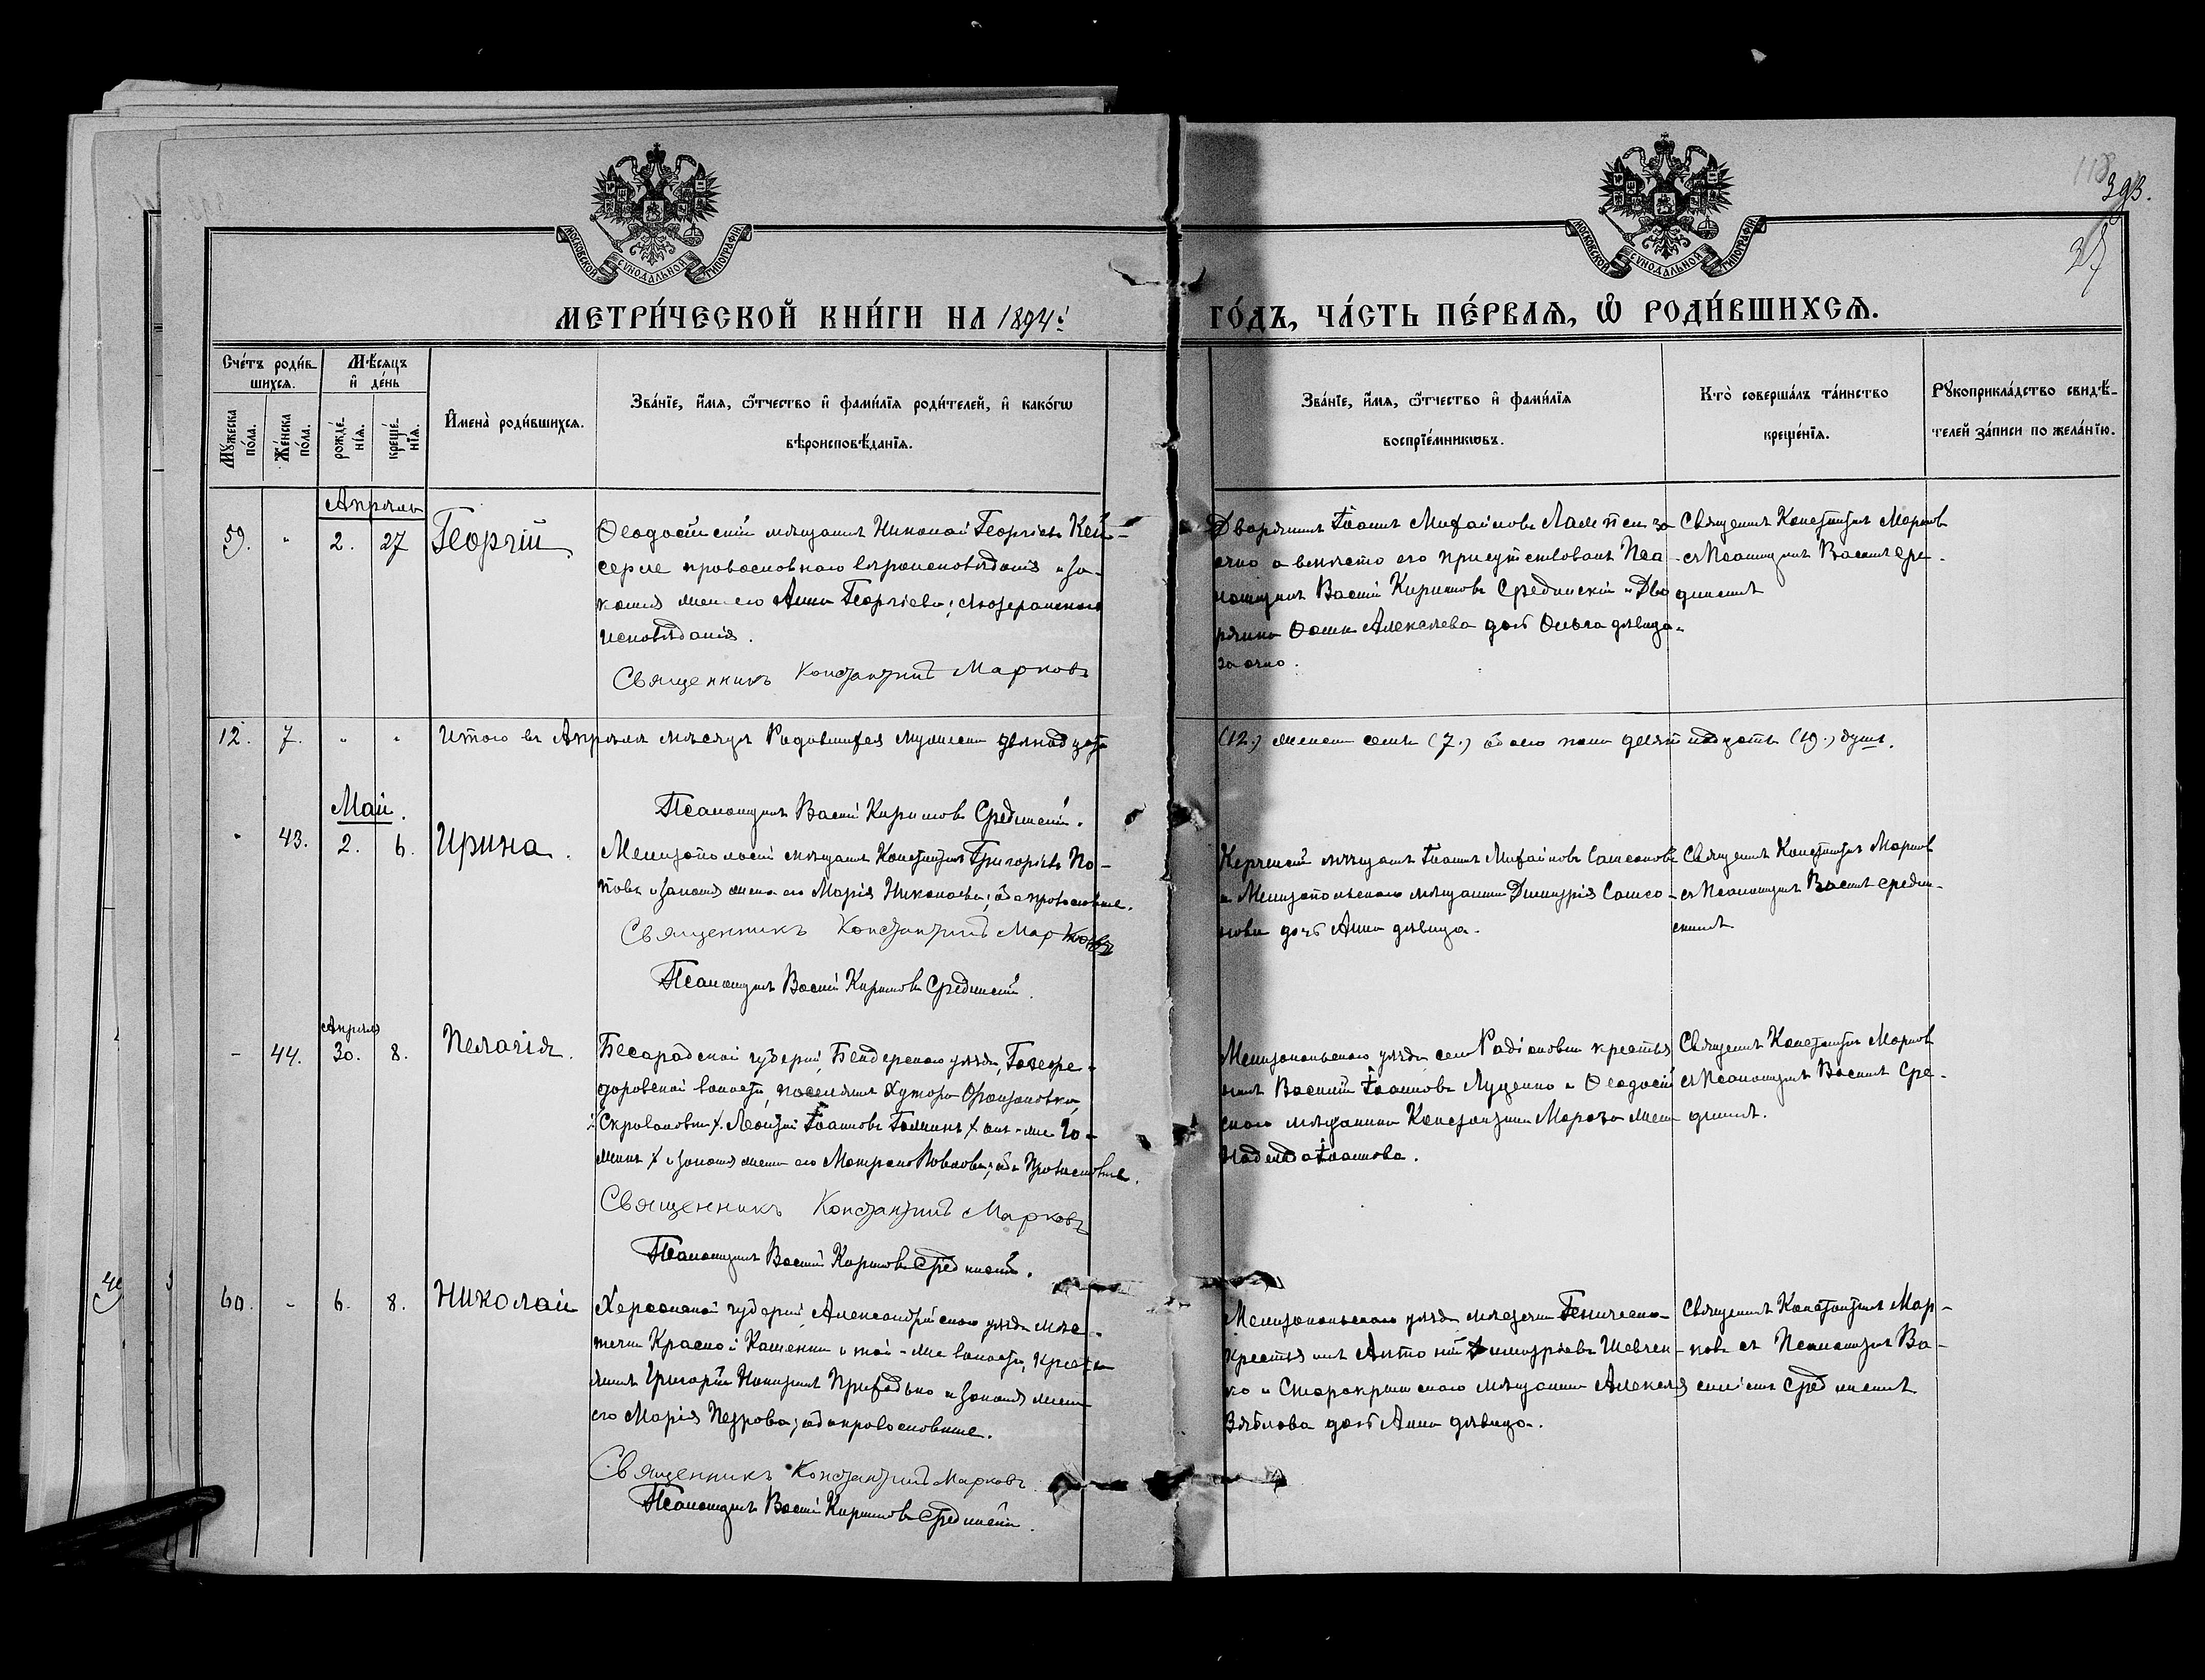 118
393.
37
МОСКОВСКОЙ СѴНОДАЛЬНОЙ ТИПОГРАФІИ
МОСКОВСКОЙ СѴНОДАЛЬНОЙ ТИПОГРАФІИ
МЕТРИ́ЧЕСКОЙ КНИ́ГИ НА 1894 й ГО́ДЪ, ЧА́СТЬ ПЕ́РВАѦ, Ѿ РОДИ́ВШИХСѦ.
Сче́тъ роди́в-
шихсѧ.
Мѣ́сяцъ
и҆ де́нь
Мꙋ́жеска по́ла.
Же́нска по́ла.
рожде́-
нїѧ.
креще́-
нїѧ.
И҆мена̀ роди́вшихсѧ.
Зва́нїе, и҆́мѧ, ѻ҆́тчество и҆ фами́лїѧ роди́телей, и҆ како́гѡ
вѣроисповѣ́данїѧ.
Зва́нїе, и҆́мѧ, ѻ҆́тчество и҆ фами́лїѧ
воспрїе́мникѡвъ.
Кто̀ соверша́лъ та́инство
креще́нїѧ.
Рꙋкоприкла́дство свидѣ́-
телей за́писи по жела́нїю.
Апрѣль
59. " 2. 27 Георгій
Ѳеодосійскій мѣщанинъ Николай Георгіевъ Кей-
серле православнаго вѣроисповѣданія и за-
конная жена его Анна Георгіева; лютеранскаго
исповѣданія.
Священникъ Константинъ Марковъ
Дворянинъ Іоаннъ Михайловъ за
очно а вмѣсто его присутствовалъ Пса-
ломщикъ Василій Кириловъ Срединскій и Дво
рянина Ѳомы Алексѣева дочь Ольга дѣвица
заочно.
Священникъ Константинъ Марковъ
съ Псаломщикомъ Василіемъ Сре-
динскимъ
12. 7. " " Итого въ Апрѣлѣ мѣсяцѣ Родившихся мужеска двѣнадцать (12.) женска семь (7.) обоего пола девятнадцать (19.) душъ.
Псаломщикъ Василій Кириловъ Срединскій.
Май.
" 43. 2. 6. Ирина.
Мелитопольскій мѣщанинъ Константинъ Григорьевъ По-
повъ и законная жена его Марія Николаева; оба православные.
Священникъ Константинъ Марковъ
Псаломщикъ Василій Кириловъ Срединскій.
Керченскій мѣщанинъ Іоаннъ Михайловъ Самсоновъ
и Мелитопольскаго мѣщанина Димитрія Самсо-
нова дочь Анна дѣвица.
Священникъ Константинъ Марковъ
съ Псаломщикомъ Василіемъ Средин-
скимъ.
Апрѣля
- 44. 30. 8. Пелагія.
Бесарабской губерніи, Бендерскаго уѣзда,
волости, поселянинъ Хутора
Іоанновъ
и законная жена его Матрона Павлова; оба Православные.
Священникъ Константинъ Марковъ
Псаломщикъ Василій Кириловъ Срединскій.
Мелитопольскаго уѣзда села Радіоновки крестья
нинъ Василій Іоанновъ Луценко и Ѳеодосій
скаго мѣщанина Константина Мороза жена
Надежда Іоаннова.
Священникъ Константинъ Марковъ
съ Псаломщикомъ Василіемъ Сре-
динскимъ.
60. - 6. 8. Николай
Херсонской губерніи, Александрійскаго уѣзда мѣс-
течка Красной Каменки и той-же волости, кресть
янинъ Григорій Никитинъ Приходько и законная жена
его Марія Петрова; оба православные.
Священникъ Константинъ Марковъ.
Псаломщикъ Василій Кириловъ Срединскій.
Мелитопольскаго уѣзда мѣстечка Геническа
крестьянинъ Антоній Димитріевъ Шевчен-
ко и Старокрымскаго мѣщанина Алексѣя
дочь Анна дѣвица.
Священникъ Константинъ Мар-
ковъ съ Псаломщикомъ Ва-
силіемъ Срединскимъ